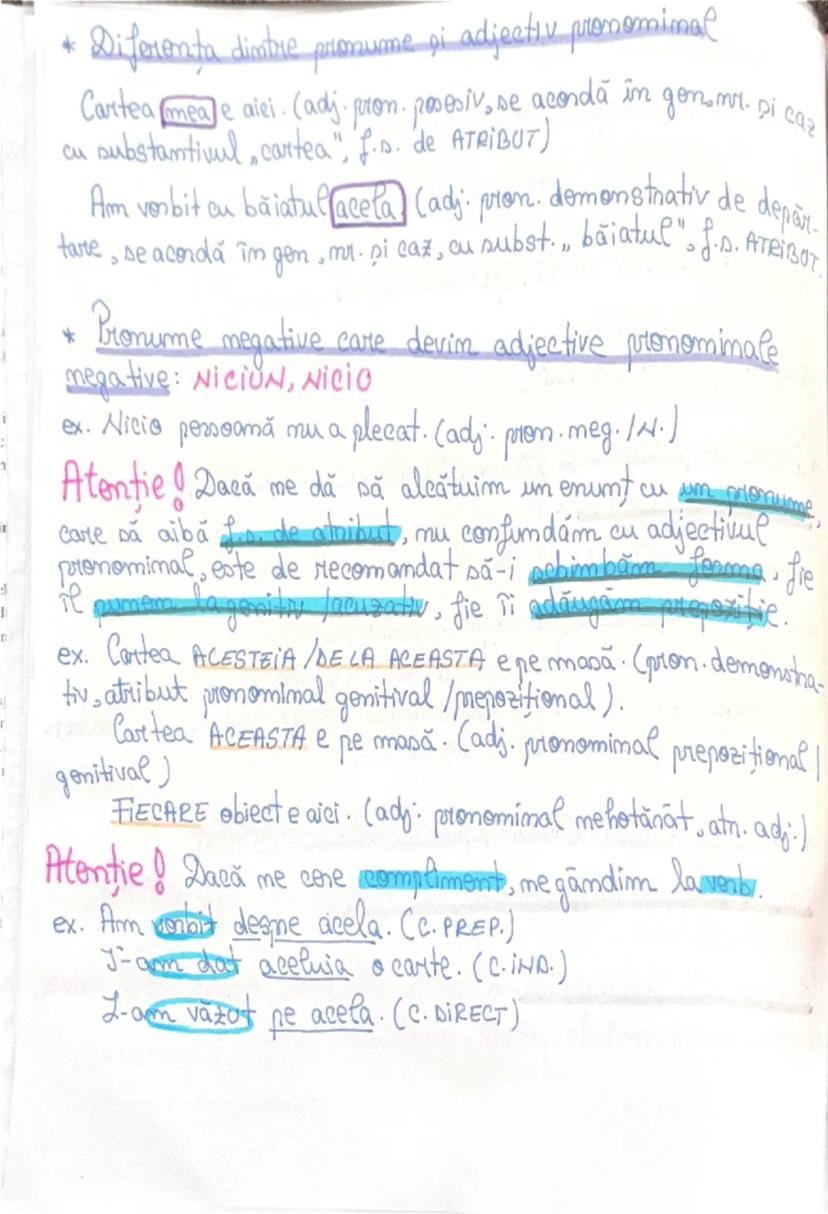 * Diferența dintre pronume și adjectiv pronominal
Cartea mea e aici. (adj. pron. posesiv, se acordă în gen, nr. și caz
cu substantivul „cartea", f.s. de ATRIBUT)
Am vorbit cu băiatul acela (adj. pron. demonstrativ de depăr-
tare, se acordă în gen, nr. și caz, cu subst. „băiatul", f.s. ATRIBUT.
* Pronume negative care devin adjective pronominale
negative: NICIUN, NICIO
ex. Nicio persoană nu a plecat. (adj. pron. neg. /N.)
Atenție! Dacă ne dă să alcătuim un enunț cu un pronume,
care să aibă f.s. de atribut, nu confundăm cu adjectivul
pronominal, este de recomandat să-i schimbăm forma, fie
îl punem la genitiv /acuzativ, fie îi adăugăm prepoziție.
ex. Cartea ACESTEIA /DE LA ACEASTA e pe masă. (pron. demonstra-
tiv, atribut pronominal genitival /prepozițional).
Cartea ACEASTA e pe masă. (adj. pronominal prepozițional /
genitival)
FIECARE obiect e aici. (adj. pronominal nehotărât, atr. adj.)
Atenție! Dacă ne cere compliment, ne gândim la verb.
ex. Am vorbit despre acela. (C. PREP.)
I-am dat aceluia o carte. (C. IND.)
L-am văzut pe acela. (C. DIRECT)